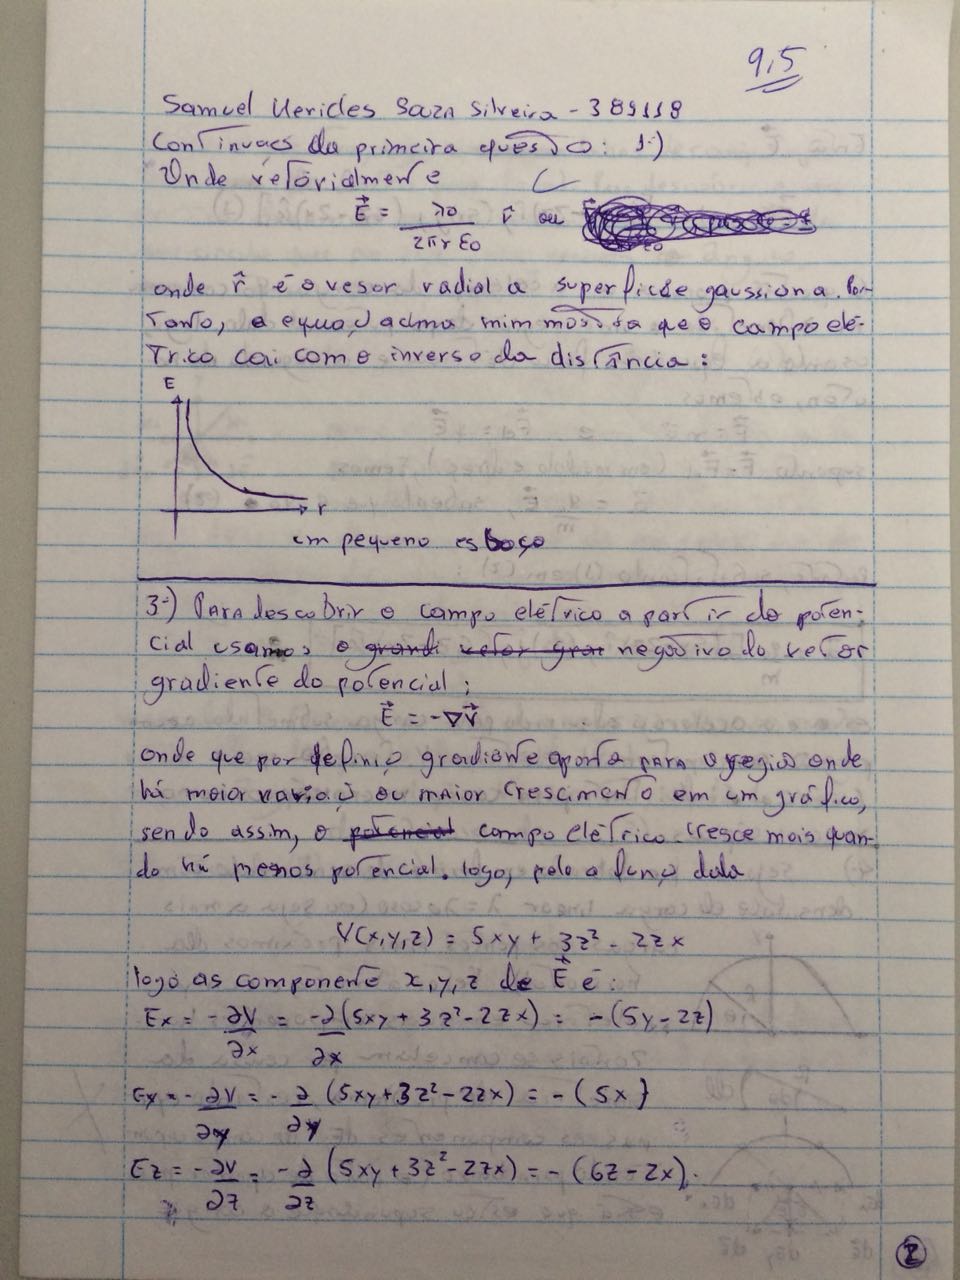 9,5
Samuel Uerides Souza Silveira - 389118
Continuaçs da primeira questão: 1-)
Onde vetorialmente
E⃗ = λo / 2πrεo r̂ ou
onde r̂ é o vesor radial a superficie gaussiana. Por-
tanto, a equaç acima mim mostra que o campo elé-
trico cai com o inverso da distância:
E
r
um pequeno esboço
3-) Para descobrir o campo elétrico a partir do poten-
cial usamos o grandi vetor gran negativo do vetor
gradiente do potencial;
E⃗ = -∇V⃗
onde que por definiç gradiente aponta para a região onde
há maior variaç ou maior crescimento em um gráfico,
sendo assim, o potencial campo elétrico cresce mais quan-
do há menos potencial. logo, pelo a funç dada
V(x,y,z) = 5xy + 3z² - 2zx
logo as componente x,y,z de E⃗ é:
Ex = -∂V/∂x = -∂/∂x (5xy + 3z² - 2zx) = -(5y - 2z)
Ey = -∂V/∂y = -∂/∂y (5xy + 3z² - 2zx) = -(5x)
Ez = -∂V/∂z = -∂/∂z (5xy + 3z² - 2zx) = -(6z - 2x).
2